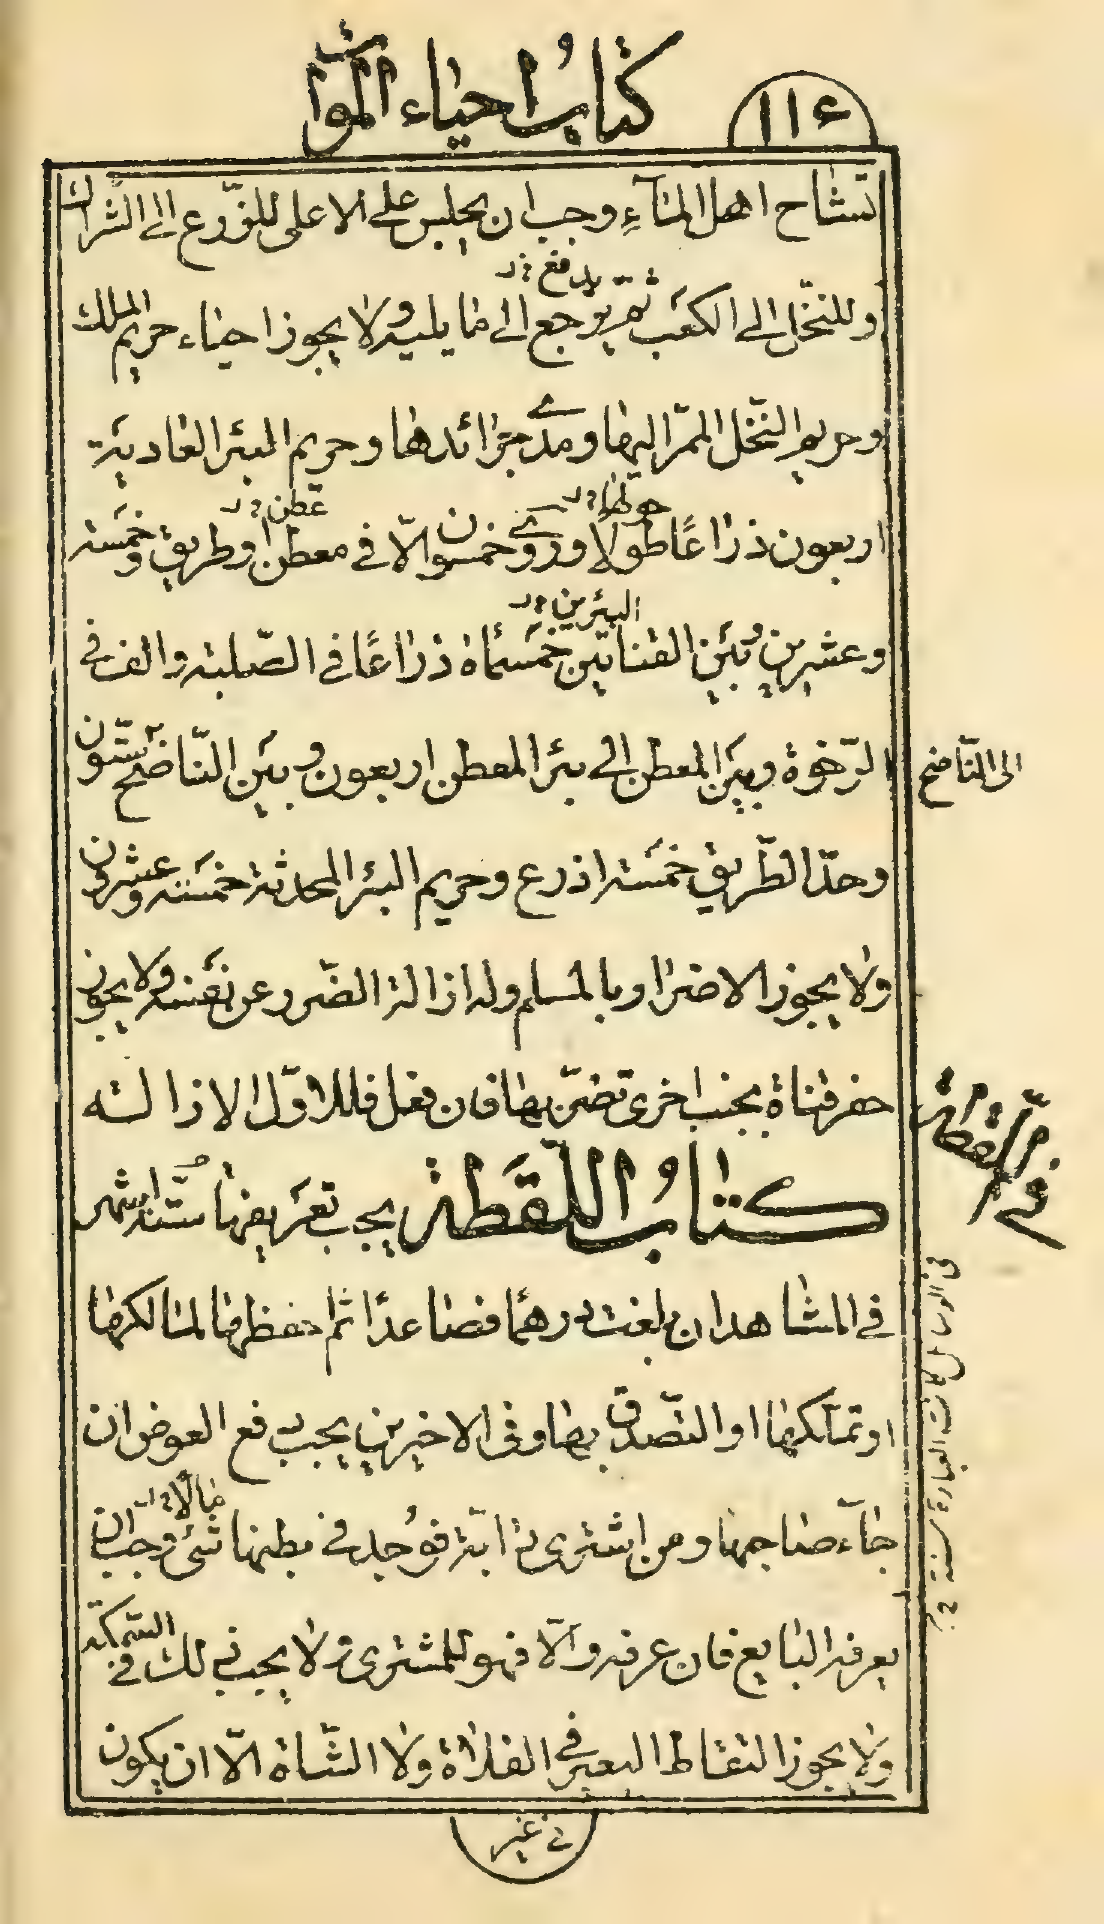 كتاب احياء الموات
١١٤
تشاح اهل الماء وجب ان يحبس على الاعلى للزرع الى الشراك
وللنخل الى الكعب ثم يرجع الى ما يليه ولا يجوز احياء حريم الملك
يدفع خ د
وحريم النخل الممر اليها ومدى جرائدها وحريم البئر العادية
اربعون ذراعًا طولا وروى خمسون الّا في معطن او طريق وخمسة
حولها خ د
عطن خ د
وعشرين وبين القناتين خمسمأة ذراعًا في الصّلبة والف في
البئرين خ د
الرّخوة وبين المعطن الى بئر المعطن اربعون وبين النّاضح ستّون
الى النّاضح
وحدّ الطّريق خمسة اذرع وحريم البئر المحدثة خمسة وعشرون
ولا يجوز الاضرار بالمسلم وله ازالة الضّرر عن نفسه ولا يجوز
حفر قناة بجنب اخرى تضرّ بها فان فعل فللاوّل الازالته
في اللّقطة
كتاب اللّقطة يجب تعريفها ستة اشهر
في المشاهد ان بلغت درهمًا فصاعدًا ثم احفظها لمالكها
او تملّكها او التصدّق بها وفى الاخيرين يجب دفع العوض ان
جاء صاحبها ومن اشترى دابّة فوجد في بطنها شئ وجب ان
مالًا خ د
يعرفه البايع فان عرفه والّا فهو للمشترى ولا يجب ذلك في السّمكة
ولا يجوز التقاط البعير في الفلاة ولا الشّاة الّا ان يكون
في غير